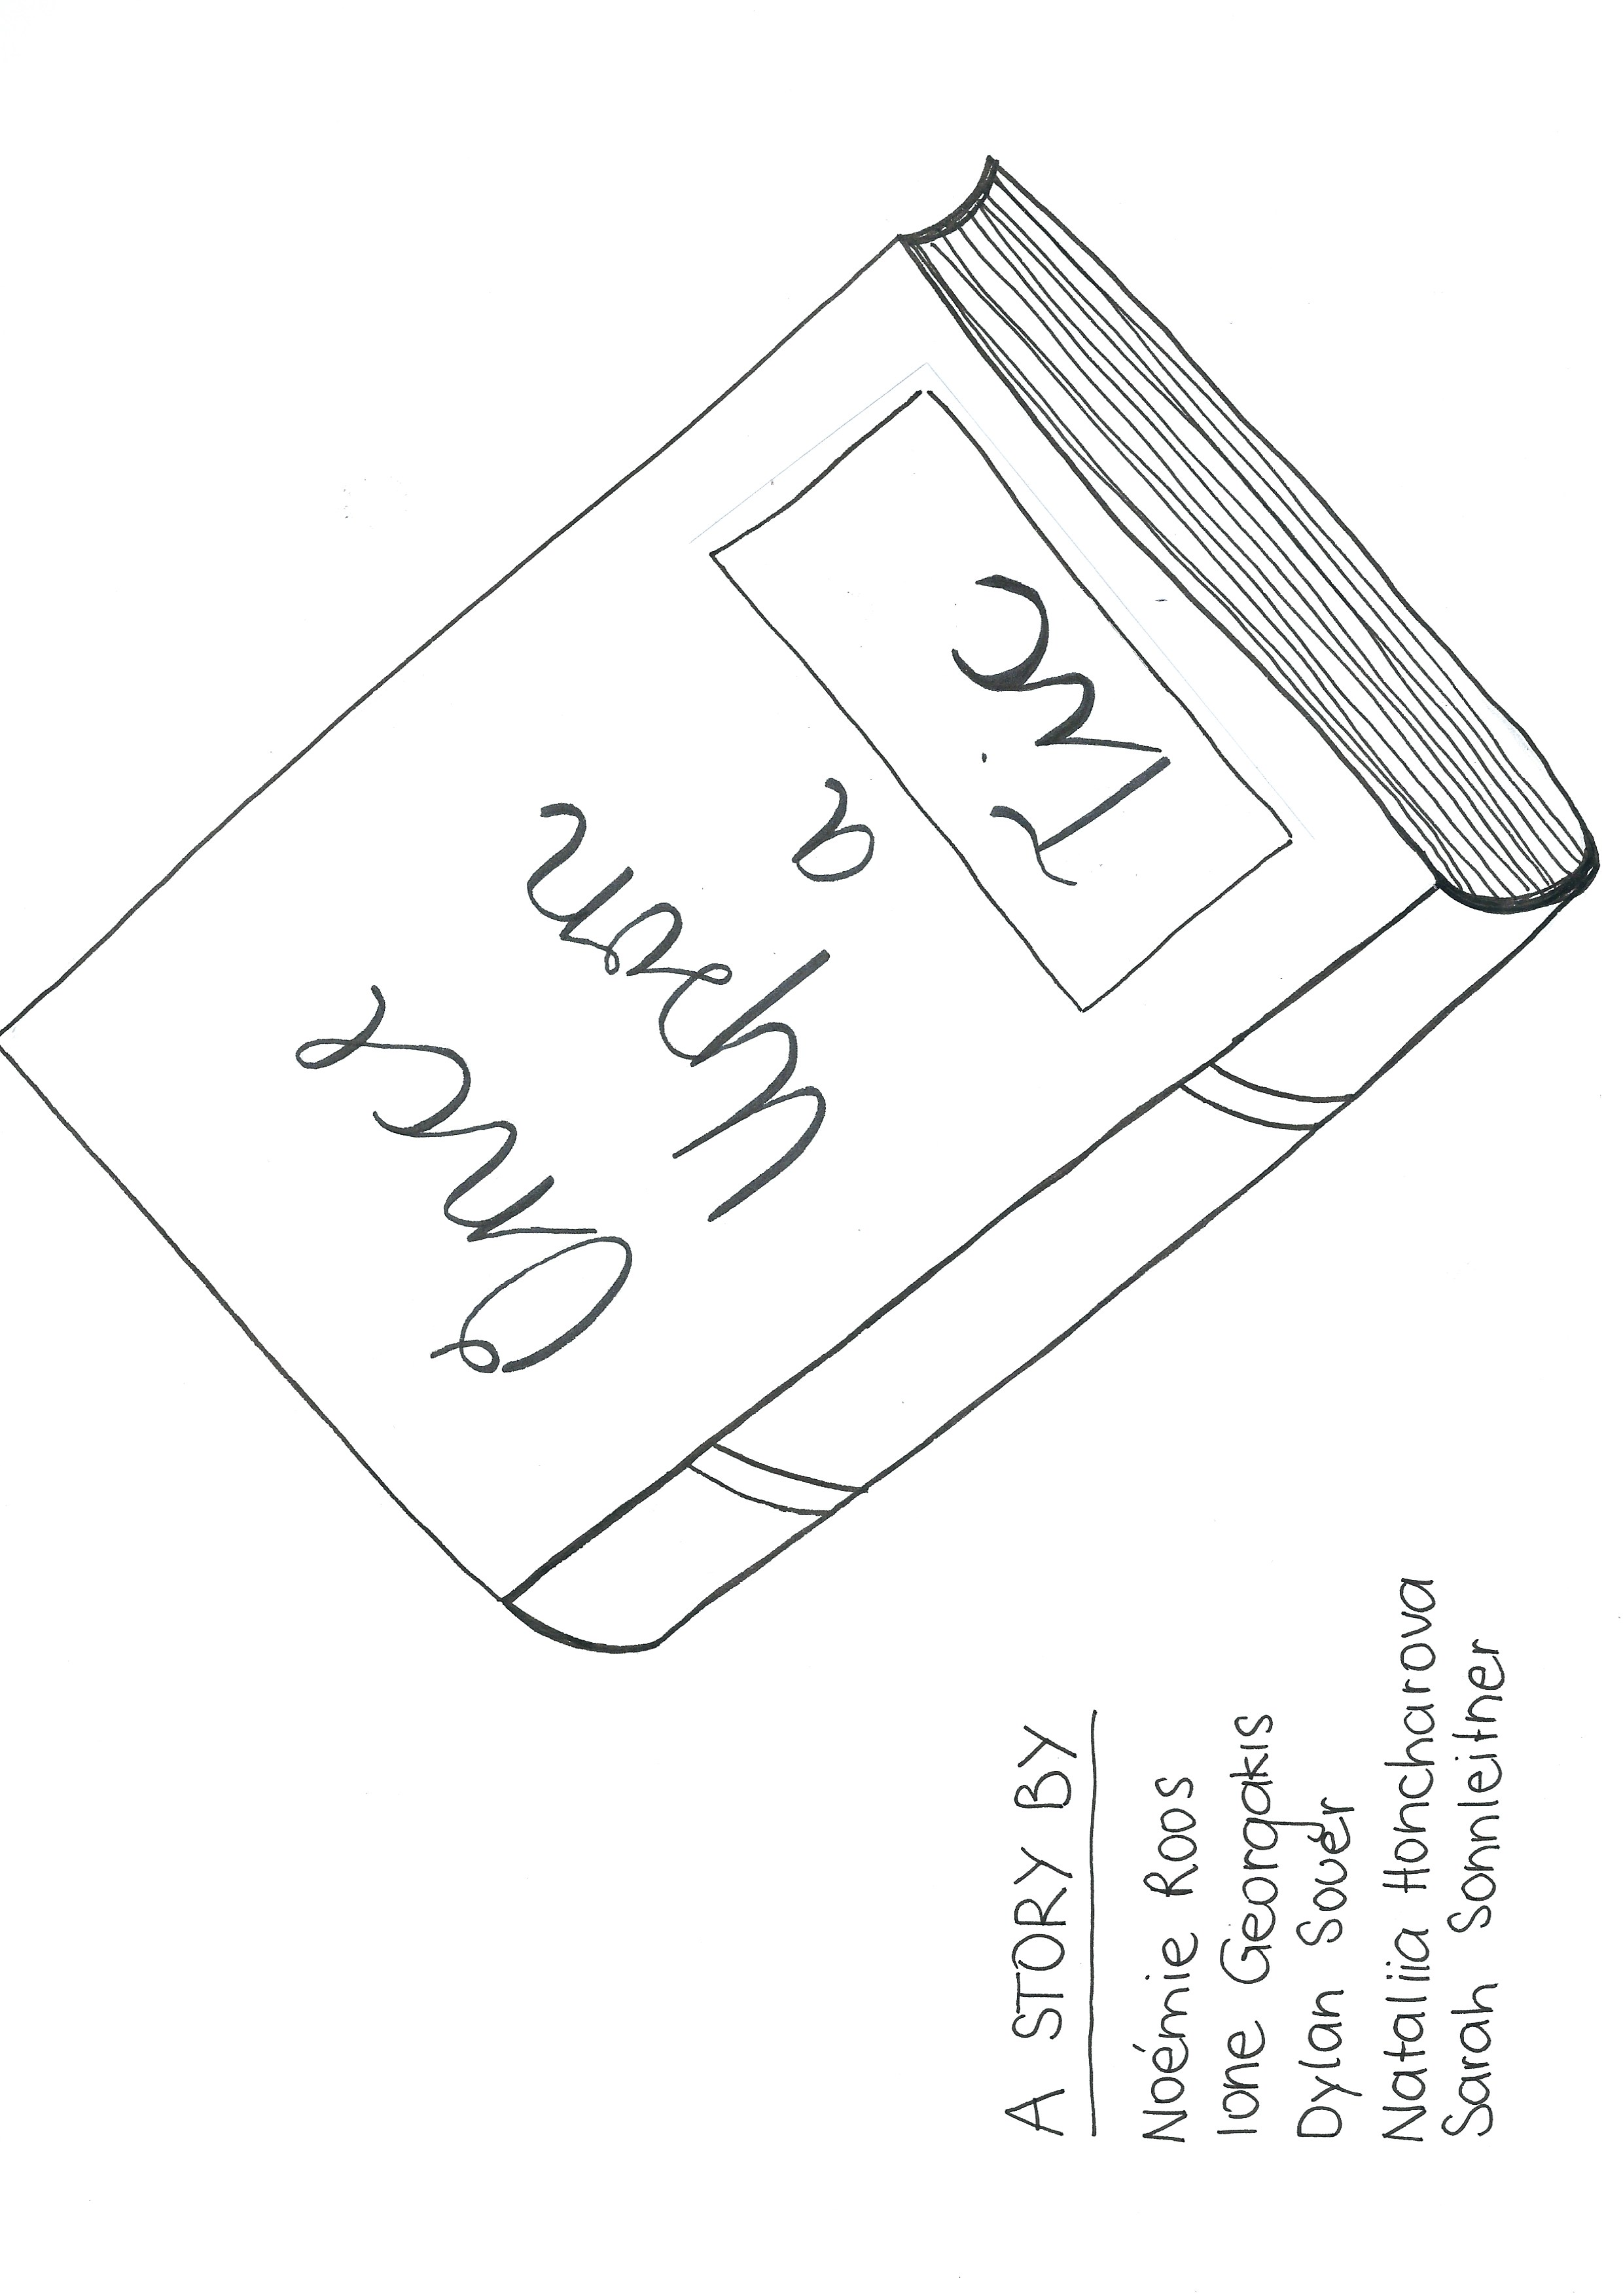 Once
Upon
a
Time
A STORY BY
Noémie Roos
Ione Georgakis
Dylan Sover
Nataliia Honcharova
Sarah Sonnleitner